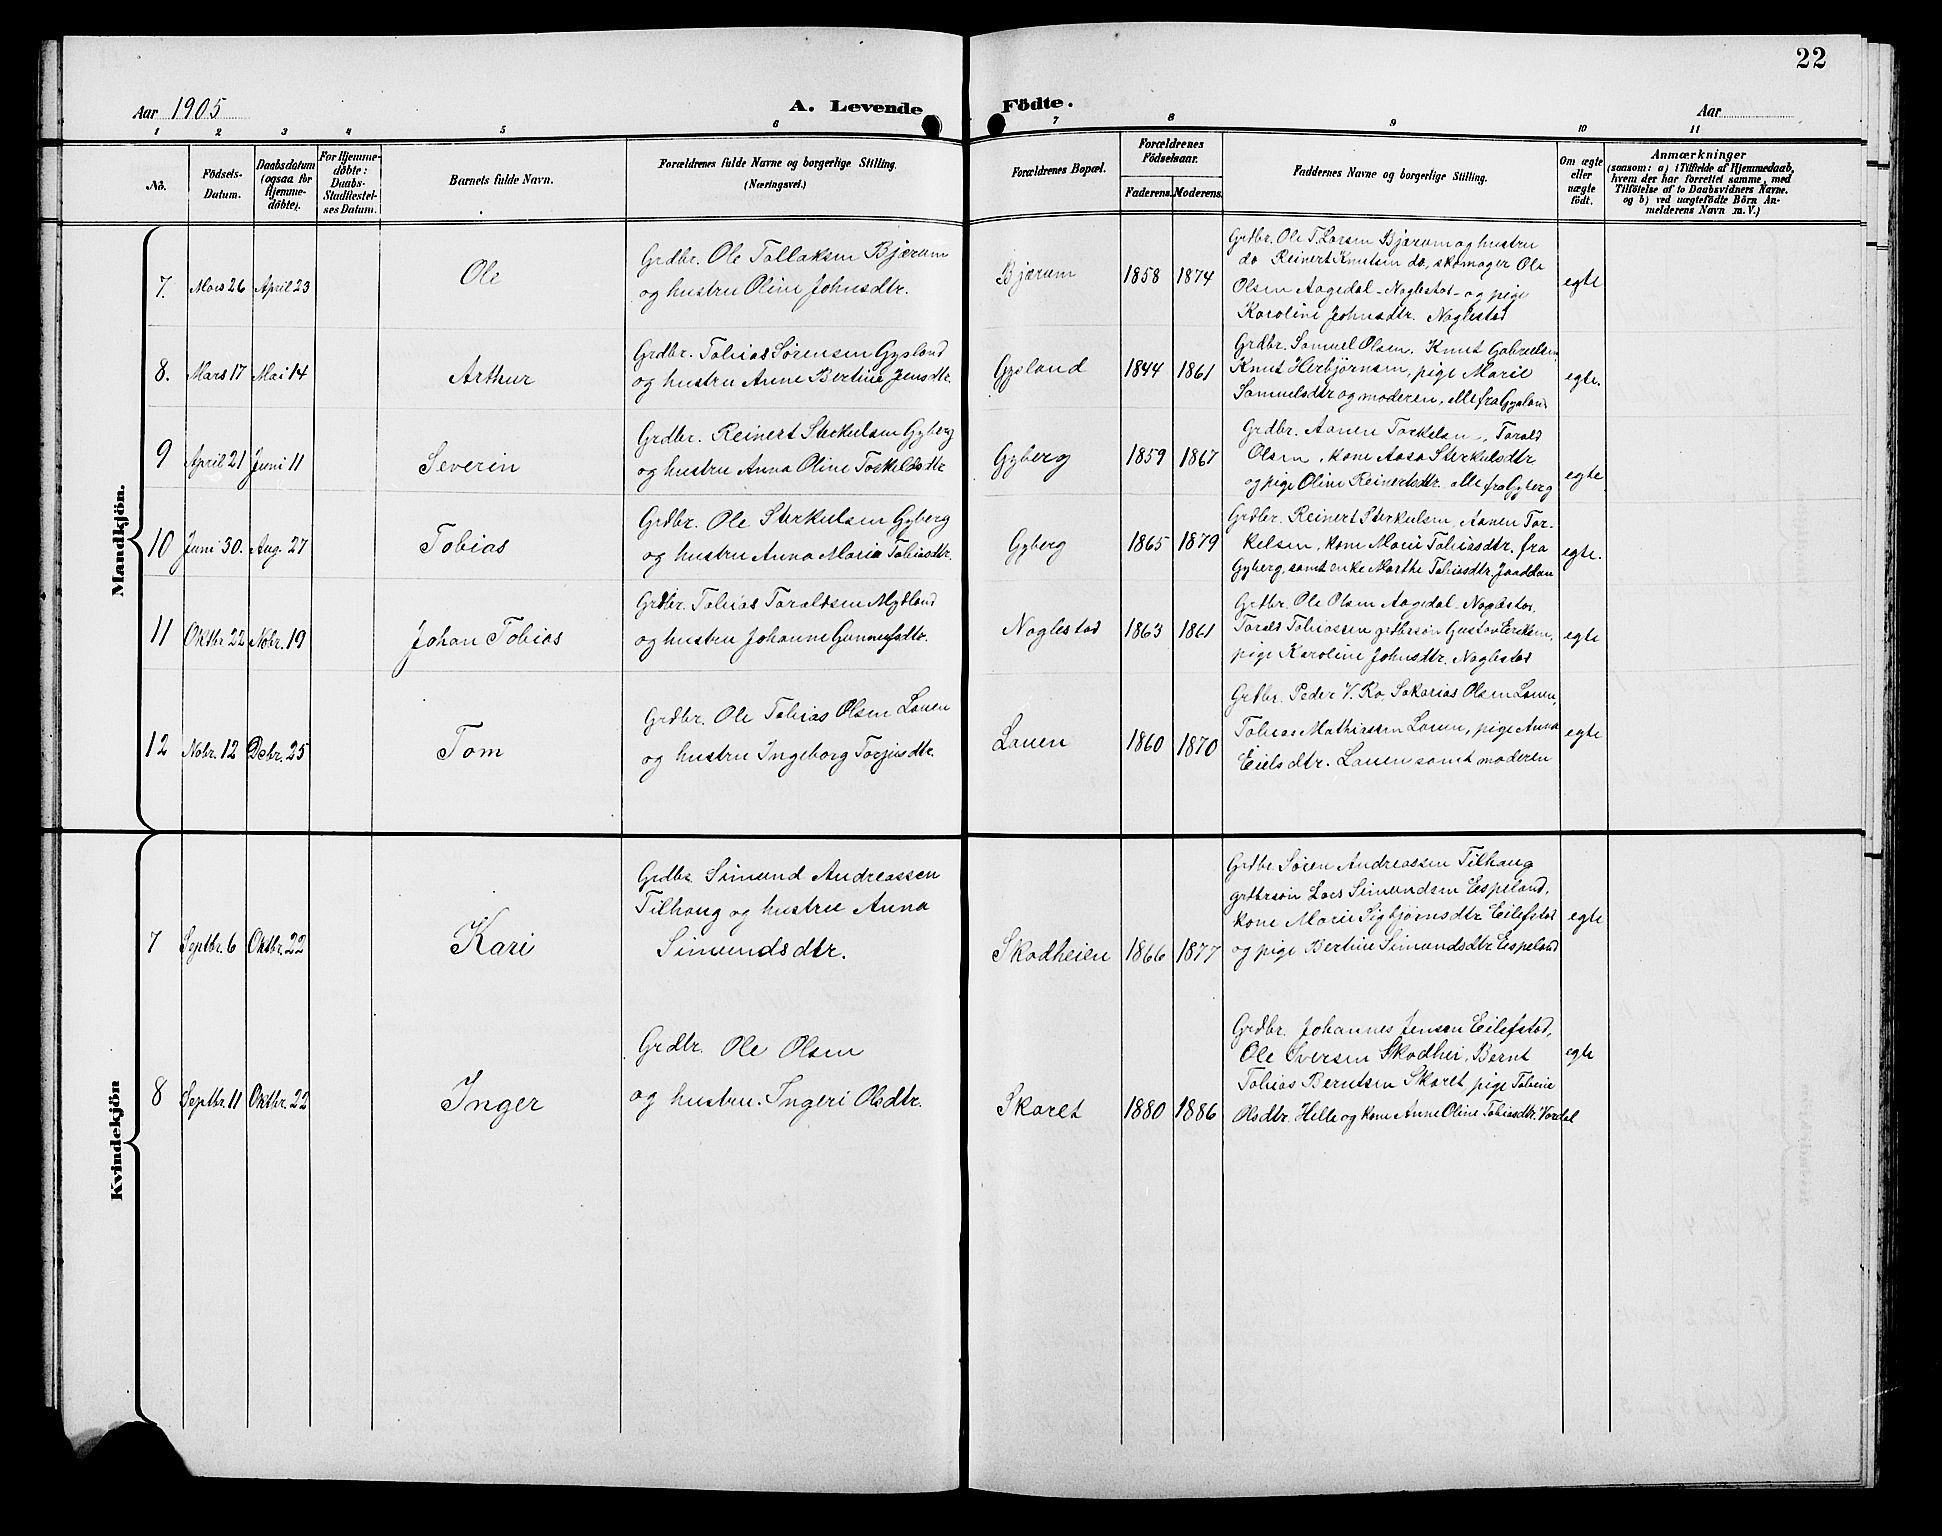 22
Aar 1905
A. Levende
Födte.
Aar
1 2 3 4 5 6 7 8 9 10 11
No.
Födsels-
Datum.
Daabsdatum
(ogsaa for
Hjemme-
døbte).
For Hjemme-
døbte:
Daabs-
Stadfæstel-
ses Datum.
Barnets fulde Navn.
Forældrenes fulde Navne og borgerlige Stilling.
(Næringsvei.)
Forældrenes Bopæl.
Forældrenes
Födselsaar.
Faderens. Moderens.
Faddernes Navne og borgerlige Stilling.
Om ægte
eller
uægte
födt.
Anmærkninger
(saasom: a) i Tilfælde af Hjemmedaab,
hvem der har forrettet samme, med
Tilföielse af to Daabsvidners Navne.
og b) ved uægtefödte Börn An-
melderens Navn m. V.)
Mandkjön.
7. Mars 26 April 23
Ole
Grdbr. Ole Tallaksen Bjærum
og hustru Oline Johnsdtr.
Bjærum
1858 1874
Grdbr. Ole T. Larsen Bjærum og hustru
do Reinert Knutsen do, skomager Ole
Olsen Aagedal - Naglestad - og pige
Karoline Johnsdtr. Naglestad
egte
8. Mars 17 Mai 14
Arthur
Grdbr. Tobias Sørensen Gysland
og hustru Anne Bertine Jensdtr.
Gysland
1844 1861
Grdbr. Samuel Olsen, Knut Gabrielsen,
Knut Herbjørnsen, pige Marie
Samuelsdtr og moderen, alle fra Gysland
egte.
9 April 21 Juni 11
Severin
Grdbr. Reinert Sterkulsen Gyberg
og hustru Anna Oline Torkildsdtr
Gyberg
1859 1867
Grdbr. Aanen Torkelsen, Torald
Olsen, kone Aasa Sterkulsdtr
og pige Oline Reinertsdtr. alle fra Gyberg
egte
10 Juni 30. Aug. 27
Tobias
Grdbr. Ole Sterkulsen Gyberg
og hustru Anna Maria Tobiasdtr.
Gyberg
1865 1879
Grdbr. Reinert Sterkulsen, Aanen Tor-
kelsen, kone Marie Tobiasdtr. fra
Gyberg, samt enke Marthe Tobiasdtr. Jaaddan
egte.
11 Oktbr 22 Nobr. 19
Johan Tobias
Grdbr. Tobias Taraldsen Mydland
og hustru Johanne Gunnufsdtr.
Naglestad
1863 1861
Grdbr. Ole Olsen Aagedal - Naglestad.
Torald Tobiassen grdbrsøn Gustav Eriksen,
pige Karoline Johnsdtr. Naglestad
egte
12 Nobr. 12 Debr. 25
Tom
Grdbr. Ole Tobias Olsen Lauen
og hustru Ingeborg Torjusdtr.
Lauen
1860 1870
Grdbr. Peder V. Ro, Sakarias Olsen Lauen,
Tobias Mathiassen Lauen, pige Anna
Eielsdtr. Lauen samt moderen
egte
Kvindekjön
7 Septbr. 6 Oktbr. 22
Kari
Grdbr. Simund Andreassen
Tilhaug og hustru Anna
Simundsdtr.
Skodheien
1866 1877
Grdbr Søren Andreassen Tilhaug
grdbrsøn Lars Simundsen Espeland,
kone Marie Sigbjørnsdtr Eilefstad
og pige Bertine Simundsdtr Espeland
egte
8 Septbr. 11 Oktbr. 22
Inger
Grdbr. Ole Olsen
og hustru. Ingeri Olsdtr.
Skaret
1880 1886
Grdbr. Johannes Jensen Eilefstad,
Ole Iversen Skodhei, Bernt
Tobias Berntsen Skaret, pige Tobine
Olsdtr. Helle og kone Anne Oline Tobiasdtr. Vordal
egte